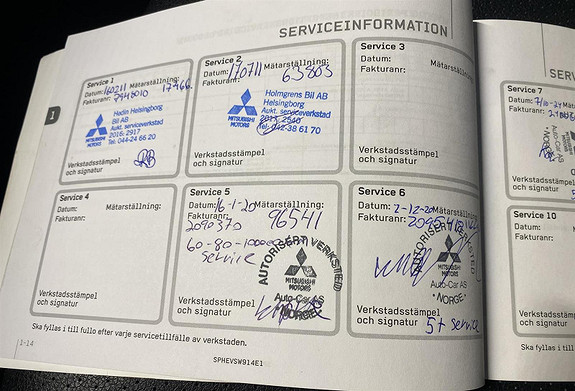 SERVICEINFORMATION
Service 1
Datum: 160211 Mätarställning: 17466
Fakturanr: 2948010
Hedin Helsingborg
Bil AB
Aukt. serviceverkstad
2016: 2917
Tel: 044-24 66 20
MITSUBISHI
MOTORS
Verkstadsstämpel
och signatur
Service 2
Datum: 170711 Mätarställning:
63803
Fakturanr:
Holmgrens Bil AB
Helsingborg
Aukt. serviceverkstad
Tel. 042-38 61 70
MITSUBISHI
MOTORS
Verkstadsstämpel
och signatur
Service 3
Datum:
Fakturanr:
Verkstadsstämpel
och signatur
1
Service 4
Datum: Mätarställning:
Fakturanr:
Verkstadsstämpel
och signatur
Service 5
Datum: 16-1-20 Mätarställning:
Fakturanr: 96541
2090370
Service
AUTORISERT VERKSTED
MITSUBISHI
MOTORS
Auto-Car AS
NORGE
Verkstadsstämpel
och signatur
Service 6
Datum: 2-12-20
Fakturanr:
AUTORISERT VERKSTED
MITSUBISHI
MOTORS
Auto-Car AS
• NORGE •
Verkstadsstämpel
och signatur
5+ service
Ska fyllas i till fullo efter varje servicetillfälle av verkstaden.
1-14
SPHEVSW914E1
Service 7
Datum:
Fakturanr:
Verkstadsstämpel
och signatur
Service 10
Datum:
Fakturanr:
Verkstadsstämpel
och signatur